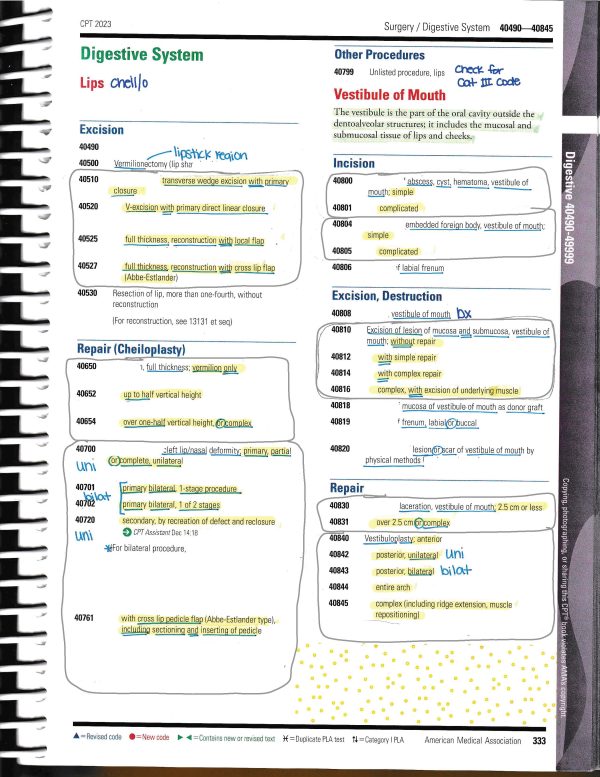 CPT 2023
Surgery / Digestive System 40490—40845
Digestive System
Lips cheil/o
Excision
40490
40500 Vermilionectomy (lip sha
lipstick region
40510 transverse wedge excision with primary
closure
40520 V-excision with primary direct linear closure
40525 full thickness, reconstruction with local flap
40527 full thickness, reconstruction with cross lip flap
(Abbe-Estlander)
40530 Resection of lip, more than one-fourth, without
reconstruction
(For reconstruction, see 13131 et seq)
Repair (Cheiloplasty)
40650 , full thickness; vermilion only
40652 up to half vertical height
40654 over one-half vertical height, or complex
40700 cleft lip/nasal deformity; primary, partial
or complete, unilateral
uni
40701 primary bilateral, 1-stage procedure
bilat
40702 primary bilateral, 1 of 2 stages
40720 secondary, by recreation of defect and reclosure
uni
CPT Assistant Dec 14:18
*For bilateral procedure,
40761 with cross lip pedicle flap (Abbe-Estlander type),
including sectioning and inserting of pedicle
Other Procedures
40799 Unlisted procedure, lips
Check for
Cat III Code
Vestibule of Mouth
The vestibule is the part of the oral cavity outside the
dentoalveolar structures; it includes the mucosal and
submucosal tissue of lips and cheeks.
Incision
40800 abscess, cyst, hematoma, vestibule of
mouth; simple
40801 complicated
40804 embedded foreign body, vestibule of mouth;
simple
40805 complicated
40806 f labial frenum
Excision, Destruction
40808 , vestibule of mouth bx
40810 Excision of lesion of mucosa and submucosa, vestibule of
mouth; without repair
40812 with simple repair
40814 with complex repair
40816 complex, with excision of underlying muscle
40818 mucosa of vestibule of mouth as donor graft
40819 f frenum, labial or buccal
40820 lesion or scar of vestibule of mouth by
physical methods
Repair
40830 laceration, vestibule of mouth; 2.5 cm or less
40831 over 2.5 cm or complex
40840 Vestibuloplasty; anterior
40842 posterior, unilateral uni
40843 posterior, bilateral bilat
40844 entire arch
40845 complex (including ridge extension, muscle
repositioning)
Digestive 40490-49999
Copying, photographing, or sharing this CPT® book violates AMA's copyright.
▲=Revised code ●=New code ▶ ◀=Contains new or revised text ⯭=Duplicate PLA test ⇅=Category I PLA American Medical Association 333